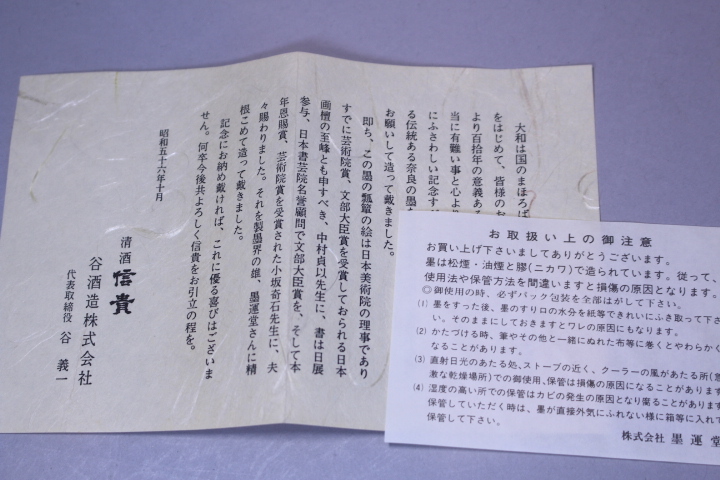 大和は国のまほろば
をはじめて、皆様のお
より百拾年の意義ある
当に有難い事と心より
にふさわしい記念す
る伝統ある奈良の墨を
お願いして造って戴きました。
即ち、この墨の瓢簞の絵は日本美術院の理事であり
すでに芸術院賞、文部大臣賞を受賞しておられる日本
画壇の至峰とも申すべき、中村貞以先生に、書は日展
参与、日本書芸院名誉顧問で文部大臣賞を、そして本
年恩賜賞、芸術院賞を受賞された小坂奇石先生に、夫
々賜わりました。それを製墨界の雄、墨運堂さんに精
根こめて造って戴きました。
記念にお納め戴ければ、これに優る喜びはございま
せん。何卒今後共よろしく信貴をお引立の程を。
昭和五十六年十月
清酒 信貴
谷酒造株式会社
代表取締役 谷 義一
お取扱い上の御注意
お買い上げ下さいましてありがとうございます。
墨は松煙・油煙と膠(ニカワ)で造られています。従って、
使用法や保管方法を間違いますと損傷の原因となります。
◎御使用の時、必ずパック包装を全部はがして下さい。
(1) 墨をすった後、墨のすり口の水分を紙等できれいにふき取って下さ
い。そのままにしておきますとワレの原因にもなります。
(2) かたづける時、筆やその他と一緒にぬれた布等に巻くとやわらかく
なることがあります。
(3) 直射日光のあたる処、ストーブの近く、クーラーの風があたる所(急
激な乾燥場所)での御使用、保管は損傷の原因になることがあります
(4) 湿度の高い所での保管はカビの発生の原因となり腐ることがあります
保管していただく時は、墨が直接外気にふれない様に箱等に入れて
保管して下さい。
株式会社 墨運堂